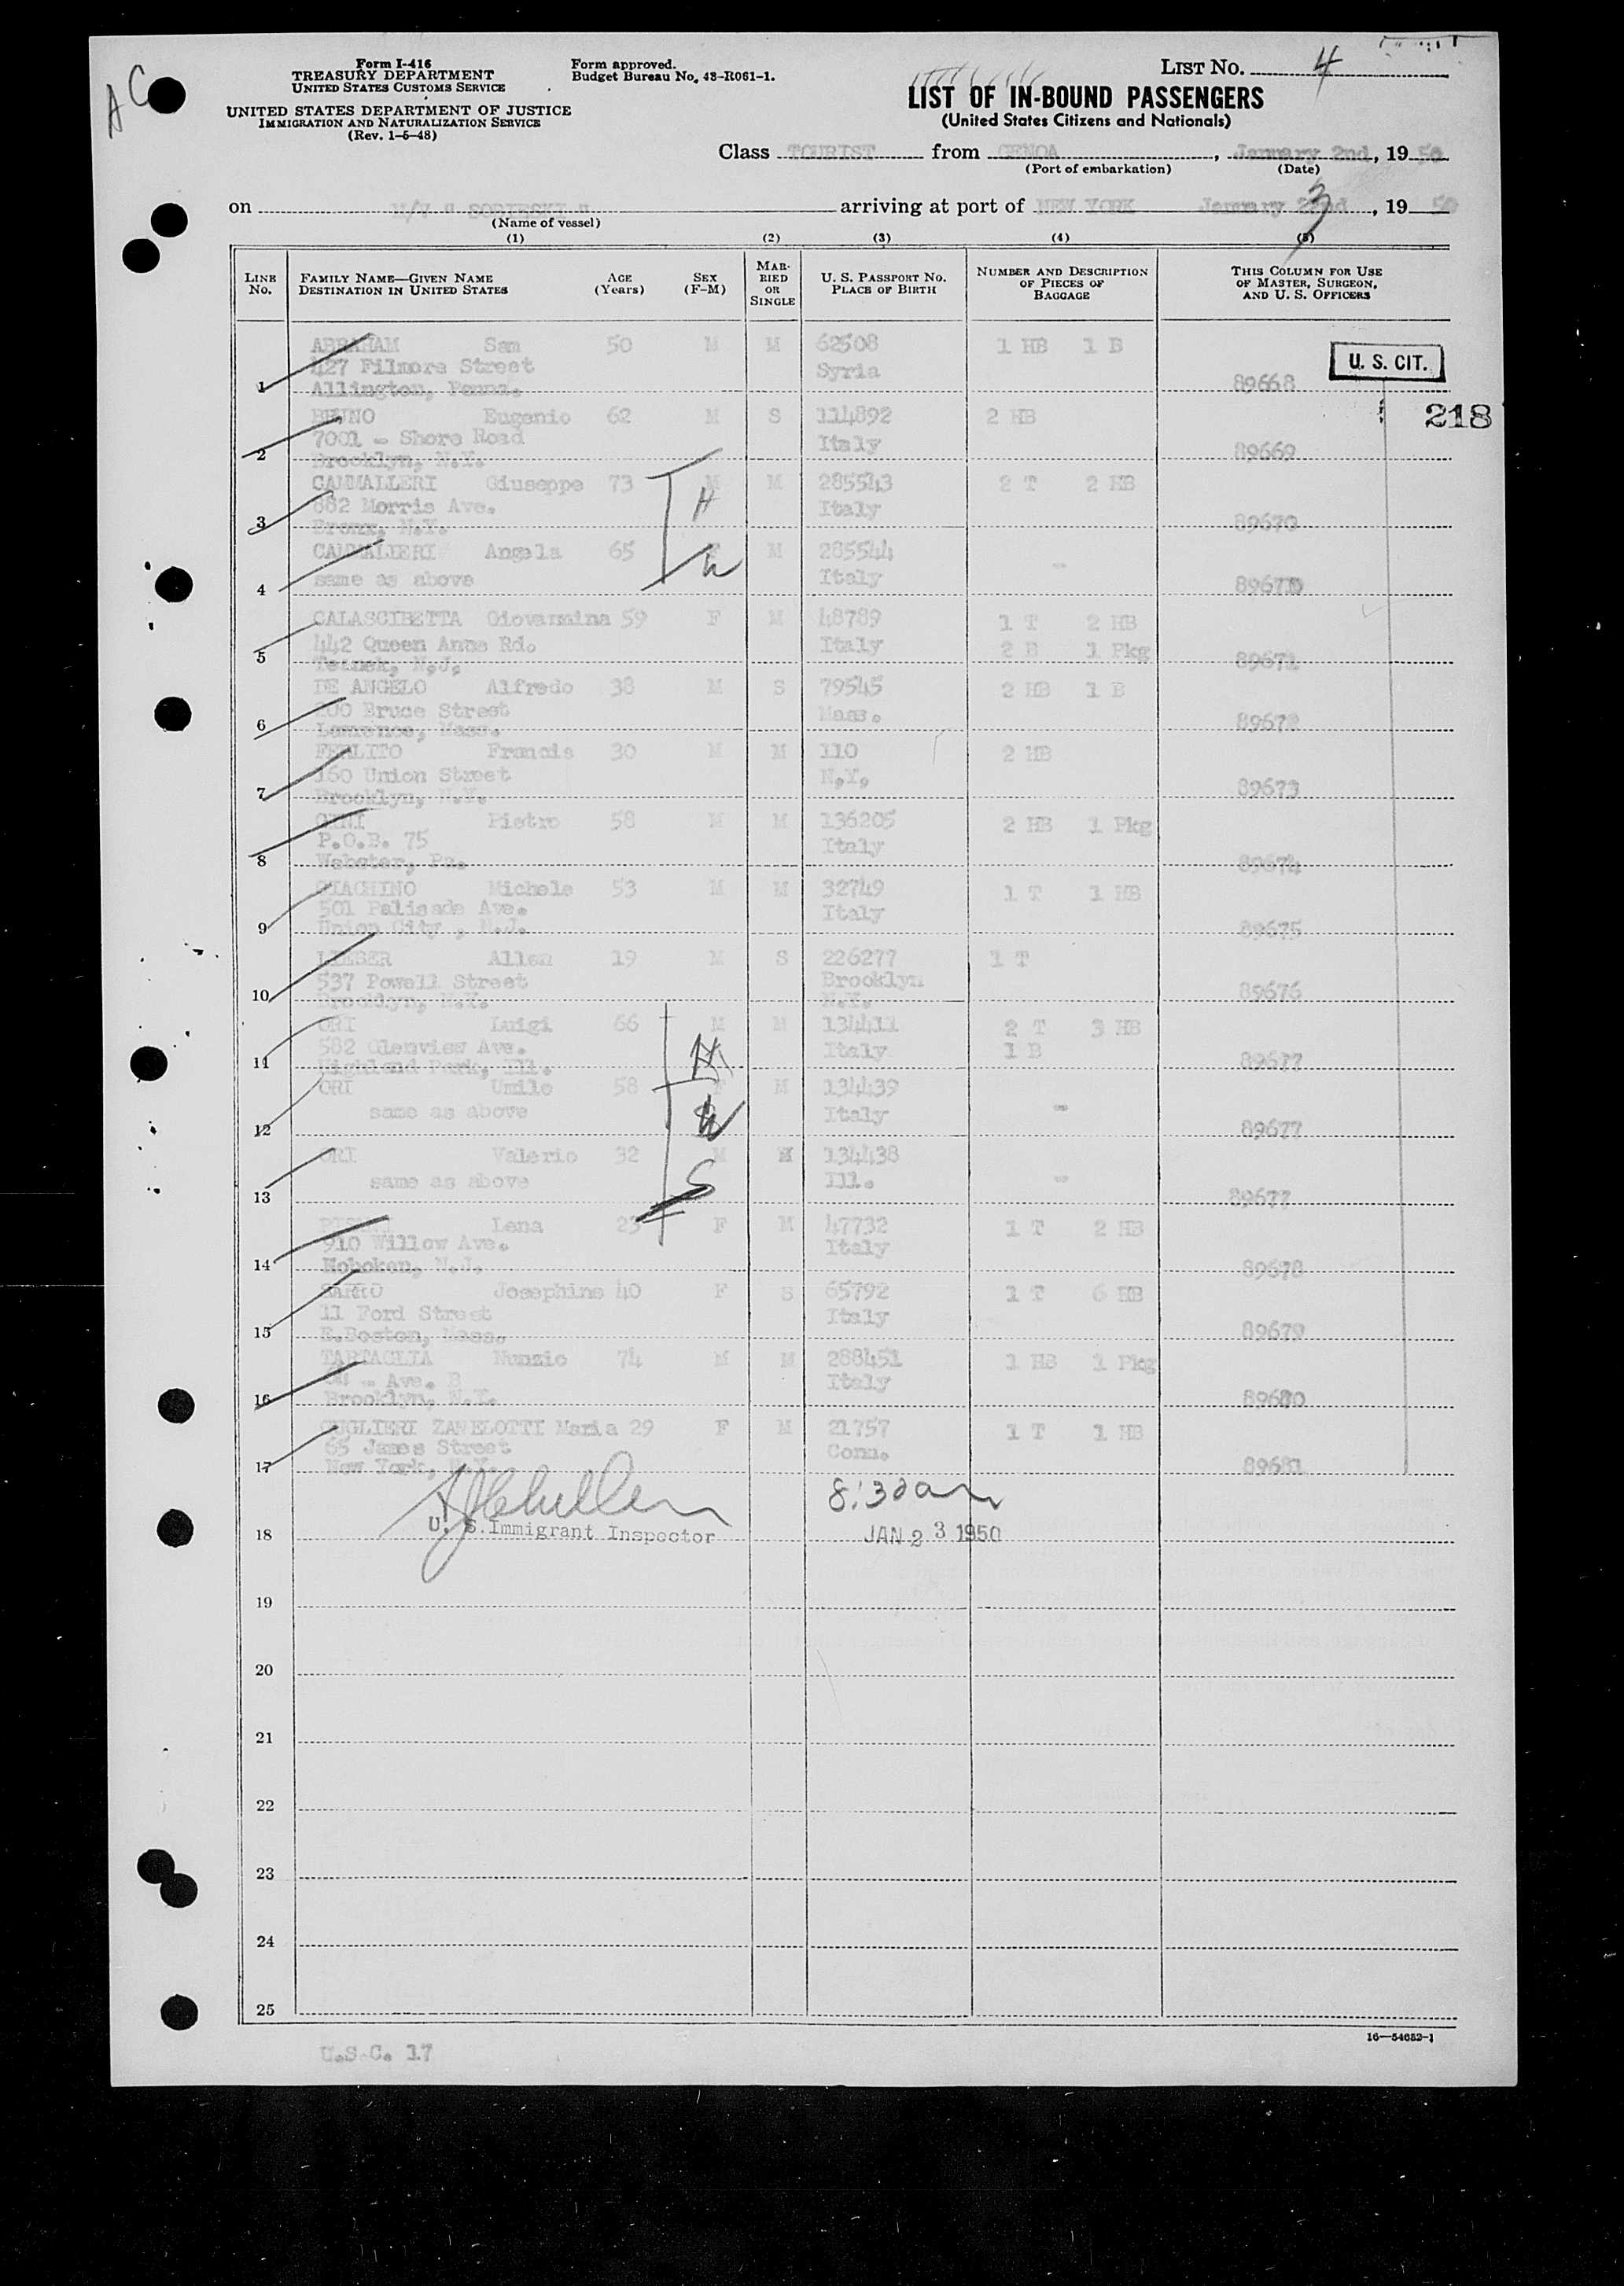 AC
Form I-416
TREASURY DEPARTMENT
UNITED STATES CUSTOMS SERVICE
UNITED STATES DEPARTMENT OF JUSTICE
IMMIGRATION AND NATURALIZATION SERVICE
(Rev. 1-5-48)
Form approved.
Budget Bureau No. 48-R061-1.
LIST NO. 4
LIST OF IN-BOUND PASSENGERS
(United States Citizens and Nationals)
Class TOURIST from GENOA, January 2nd, 19 50
(Port of embarkation) (Date)
on M/V " SOBIESKI " arriving at port of NEW YORK January 23, 19 50
(Name of vessel)
(1) (2) (3) (4) (5)
LINE NO. FAMILY NAME—GIVEN NAME DESTINATION IN UNITED STATES AGE (Years) SEX (F-M) MARRIED OR SINGLE U. S. PASSPORT NO. PLACE OF BIRTH NUMBER AND DESCRIPTION OF PIECES OF BAGGAGE THIS COLUMN FOR USE OF MASTER, SURGEON, AND U. S. OFFICERS
ABRAHAM Sam 50 M M 62508 1 HB 1 B
427 Filmore Street Syria U. S. CIT.
1 Allington, Penna. 89668
BRUNO Eugenio 62 M S 114892 2 HB 218
7001 - Shore Road Italy
2 Brooklyn, N.Y. 89669
CAMMALLERI Giuseppe 73 M H M 285543 2 T 2 HB
882 Morris Ave. Italy
3 Bronx, N.Y. 89670
CAMMALLERI Angela 65 F W M 285544 -
4 same as above Italy 89670
CALASCIBETTA Giovannina 59 F M 48789 1 T 2 HB
442 Queen Anne Rd. Italy 2 B 1 Pkg
5 Teanek, N.J. 89671
DE ANGELO Alfredo 38 M S 79545 2 HB 1 B
200 Bruce Street Mass.
6 Lawrence, Mass. 89672
FERLITO Francis 30 M M 110 2 HB
160 Union Street N.Y.
7 Brooklyn, N.Y. 89673
GINI Pietro 58 M M 136205 2 HB 1 Pkg
P.O.B. 75 Italy
8 Webster, Pa. 89674
GIACHINO Michele 53 M M 32749 1 T 1 HB
501 Palisade Ave. Italy
9 Union City, N.J. 89675
LIEBER Allen 19 M S 226277 1 T
537 Powell Street Brooklyn
10 Brooklyn, N.Y. N.Y. 89676
ORI Luigi 66 M H M 134411 2 T 3 HB
582 Glenview Ave. Italy 1 B
11 Highland Park, Ill. 89677
ORI Umile 58 F W M 134439 -
12 same as above Italy 89677
ORI Valerio 32 M S M 134438 -
13 same as above Ill. 89677
Lena 23 F M 47732 1 T 2 HB
910 Willow Ave. Italy
14 Hoboken, N.J. 89678
SARRO Josephine 40 F S 65792 1 T 6 HB
11 Ford Street Italy
15 E.Boston, Mass. 89679
TARTAGLIA Nunzio 74 M M 288451 1 HB 1 Pkg
- Ave. Italy
16 Brooklyn, N.Y. 89680
GUGLIERI ZANELOTTI Maria 29 F M 21757 1 T 1 HB
65 James Street Conn.
17 New York, N.Y. 89681
8:30am
18 U. S. Immigrant Inspector JAN 23 1950
19
20
21
22
23
24
25
16—54682-1
U.S.C. 17